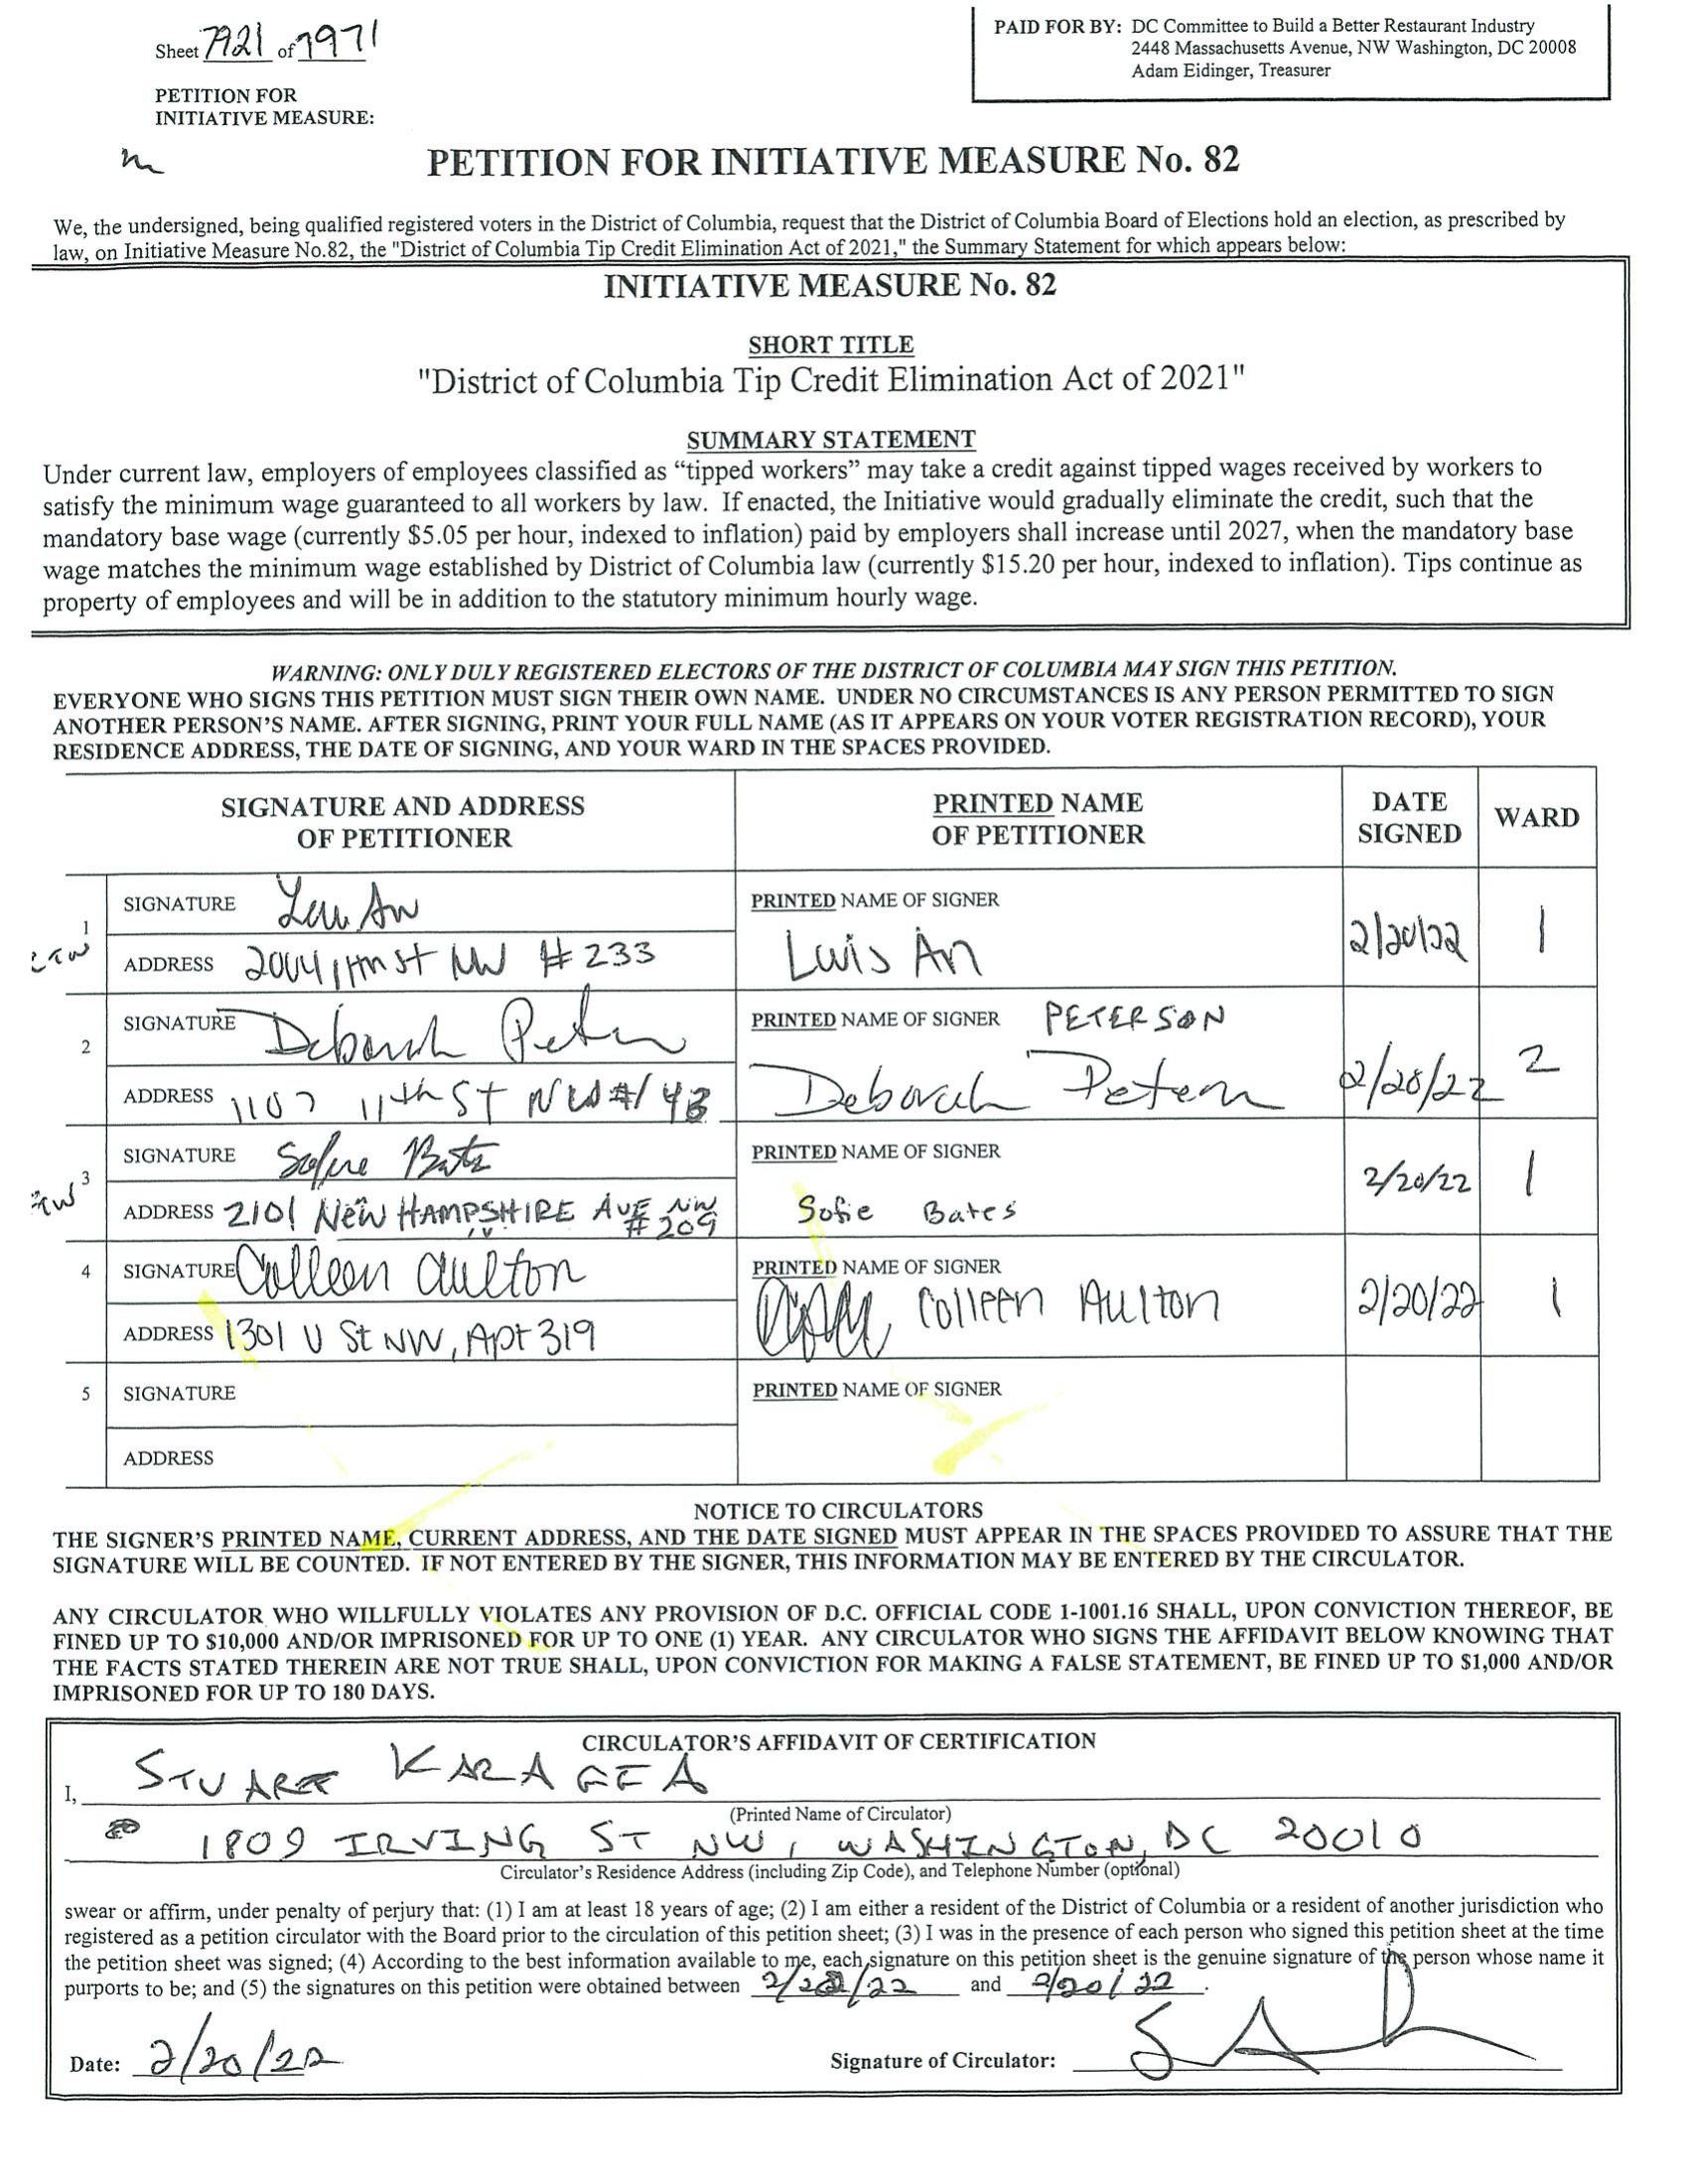 Sheet 7921 of 7971
PAID FOR BY: DC Committee to Build a Better Restaurant Industry
2448 Massachusetts Avenue, NW Washington, DC 20008
Adam Eidinger, Treasurer
PETITION FOR
INITIATIVE MEASURE:
PETITION FOR INITIATIVE MEASURE No. 82
We, the undersigned, being qualified registered voters in the District of Columbia, request that the District of Columbia Board of Elections hold an election, as prescribed by
law, on Initiative Measure No.82, the "District of Columbia Tip Credit Elimination Act of 2021," the Summary Statement for which appears below:
INITIATIVE MEASURE No. 82
SHORT TITLE
"District of Columbia Tip Credit Elimination Act of 2021"
SUMMARY STATEMENT
Under current law, employers of employees classified as “tipped workers” may take a credit against tipped wages received by workers to
satisfy the minimum wage guaranteed to all workers by law. If enacted, the Initiative would gradually eliminate the credit, such that the
mandatory base wage (currently $5.05 per hour, indexed to inflation) paid by employers shall increase until 2027, when the mandatory base
wage matches the minimum wage established by District of Columbia law (currently $15.20 per hour, indexed to inflation). Tips continue as
property of employees and will be in addition to the statutory minimum hourly wage.
WARNING: ONLY DULY REGISTERED ELECTORS OF THE DISTRICT OF COLUMBIA MAY SIGN THIS PETITION.
EVERYONE WHO SIGNS THIS PETITION MUST SIGN THEIR OWN NAME. UNDER NO CIRCUMSTANCES IS ANY PERSON PERMITTED TO SIGN
ANOTHER PERSON’S NAME. AFTER SIGNING, PRINT YOUR FULL NAME (AS IT APPEARS ON YOUR VOTER REGISTRATION RECORD), YOUR
RESIDENCE ADDRESS, THE DATE OF SIGNING, AND YOUR WARD IN THE SPACES PROVIDED.
SIGNATURE AND ADDRESS
OF PETITIONER
PRINTED NAME
OF PETITIONER
DATE
SIGNED
WARD
1
SIGNATURE
ADDRESS NW # 233
PRINTED NAME OF SIGNER
Luis An
2/20/22
1
2
SIGNATURE Deborah
ADDRESS 1107 11th St NW #
PRINTED NAME OF SIGNER PETERSON
Deborah
2/20/22
2
3
SIGNATURE
ADDRESS 2101 NEW HAMPSHIRE AVE NW
# 209
PRINTED NAME OF SIGNER
Sofie Bates
2/20/22
1
4
SIGNATURE Colleen Aulton
ADDRESS 1301 U St NW, Apt 319
PRINTED NAME OF SIGNER
Colleen Aulton
2/20/22
1
5
SIGNATURE
ADDRESS
PRINTED NAME OF SIGNER
NOTICE TO CIRCULATORS
THE SIGNER’S PRINTED NAME, CURRENT ADDRESS, AND THE DATE SIGNED MUST APPEAR IN THE SPACES PROVIDED TO ASSURE THAT THE
SIGNATURE WILL BE COUNTED. IF NOT ENTERED BY THE SIGNER, THIS INFORMATION MAY BE ENTERED BY THE CIRCULATOR.
ANY CIRCULATOR WHO WILLFULLY VIOLATES ANY PROVISION OF D.C. OFFICIAL CODE 1-1001.16 SHALL, UPON CONVICTION THEREOF, BE
FINED UP TO $10,000 AND/OR IMPRISONED FOR UP TO ONE (1) YEAR. ANY CIRCULATOR WHO SIGNS THE AFFIDAVIT BELOW KNOWING THAT
THE FACTS STATED THEREIN ARE NOT TRUE SHALL, UPON CONVICTION FOR MAKING A FALSE STATEMENT, BE FINED UP TO $1,000 AND/OR
IMPRISONED FOR UP TO 180 DAYS.
CIRCULATOR’S AFFIDAVIT OF CERTIFICATION
I, STUART
(Printed Name of Circulator)
1809 IRVING ST NW, WASHINGTON, DC 20010
Circulator’s Residence Address (including Zip Code), and Telephone Number (optional)
swear or affirm, under penalty of perjury that: (1) I am at least 18 years of age; (2) I am either a resident of the District of Columbia or a resident of another jurisdiction who
registered as a petition circulator with the Board prior to the circulation of this petition sheet; (3) I was in the presence of each person who signed this petition sheet at the time
the petition sheet was signed; (4) According to the best information available to me, each signature on this petition sheet is the genuine signature of the person whose name it
purports to be; and (5) the signatures on this petition were obtained between and 2/20/22 .
Date: 2/20/22
Signature of Circulator: